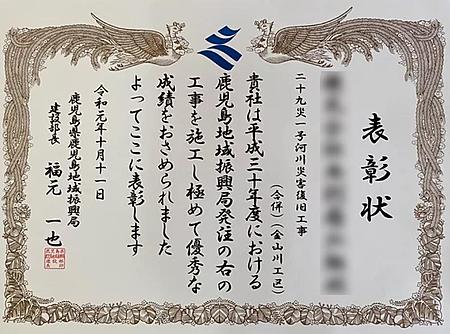 表彰状
二十九災一号河川災害復旧工事
(合併)(金山川工区)
貴社は平成三十年度における
鹿児島地域振興局発注の右の
工事を施工し極めて優秀な
成績をおさめられました
よってここに表彰します
令和元年十月十一日
鹿児島県鹿児島地域振興局
建設部長 福元一也